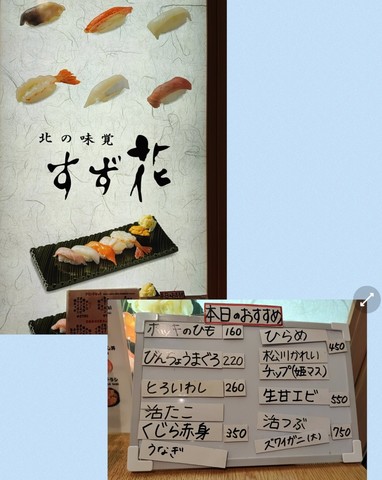 北の味覚
すず花
本日のおすすめ
ホッキのひも 160
びんちょうまぐろ 220
とろいわし 260
活たこ
くじら赤身 350
うなぎ
ひらめ
松川かれい 450
チップ(姫マス)
生甘エビ 550
活つぶ
ズワイガニ(大) 750